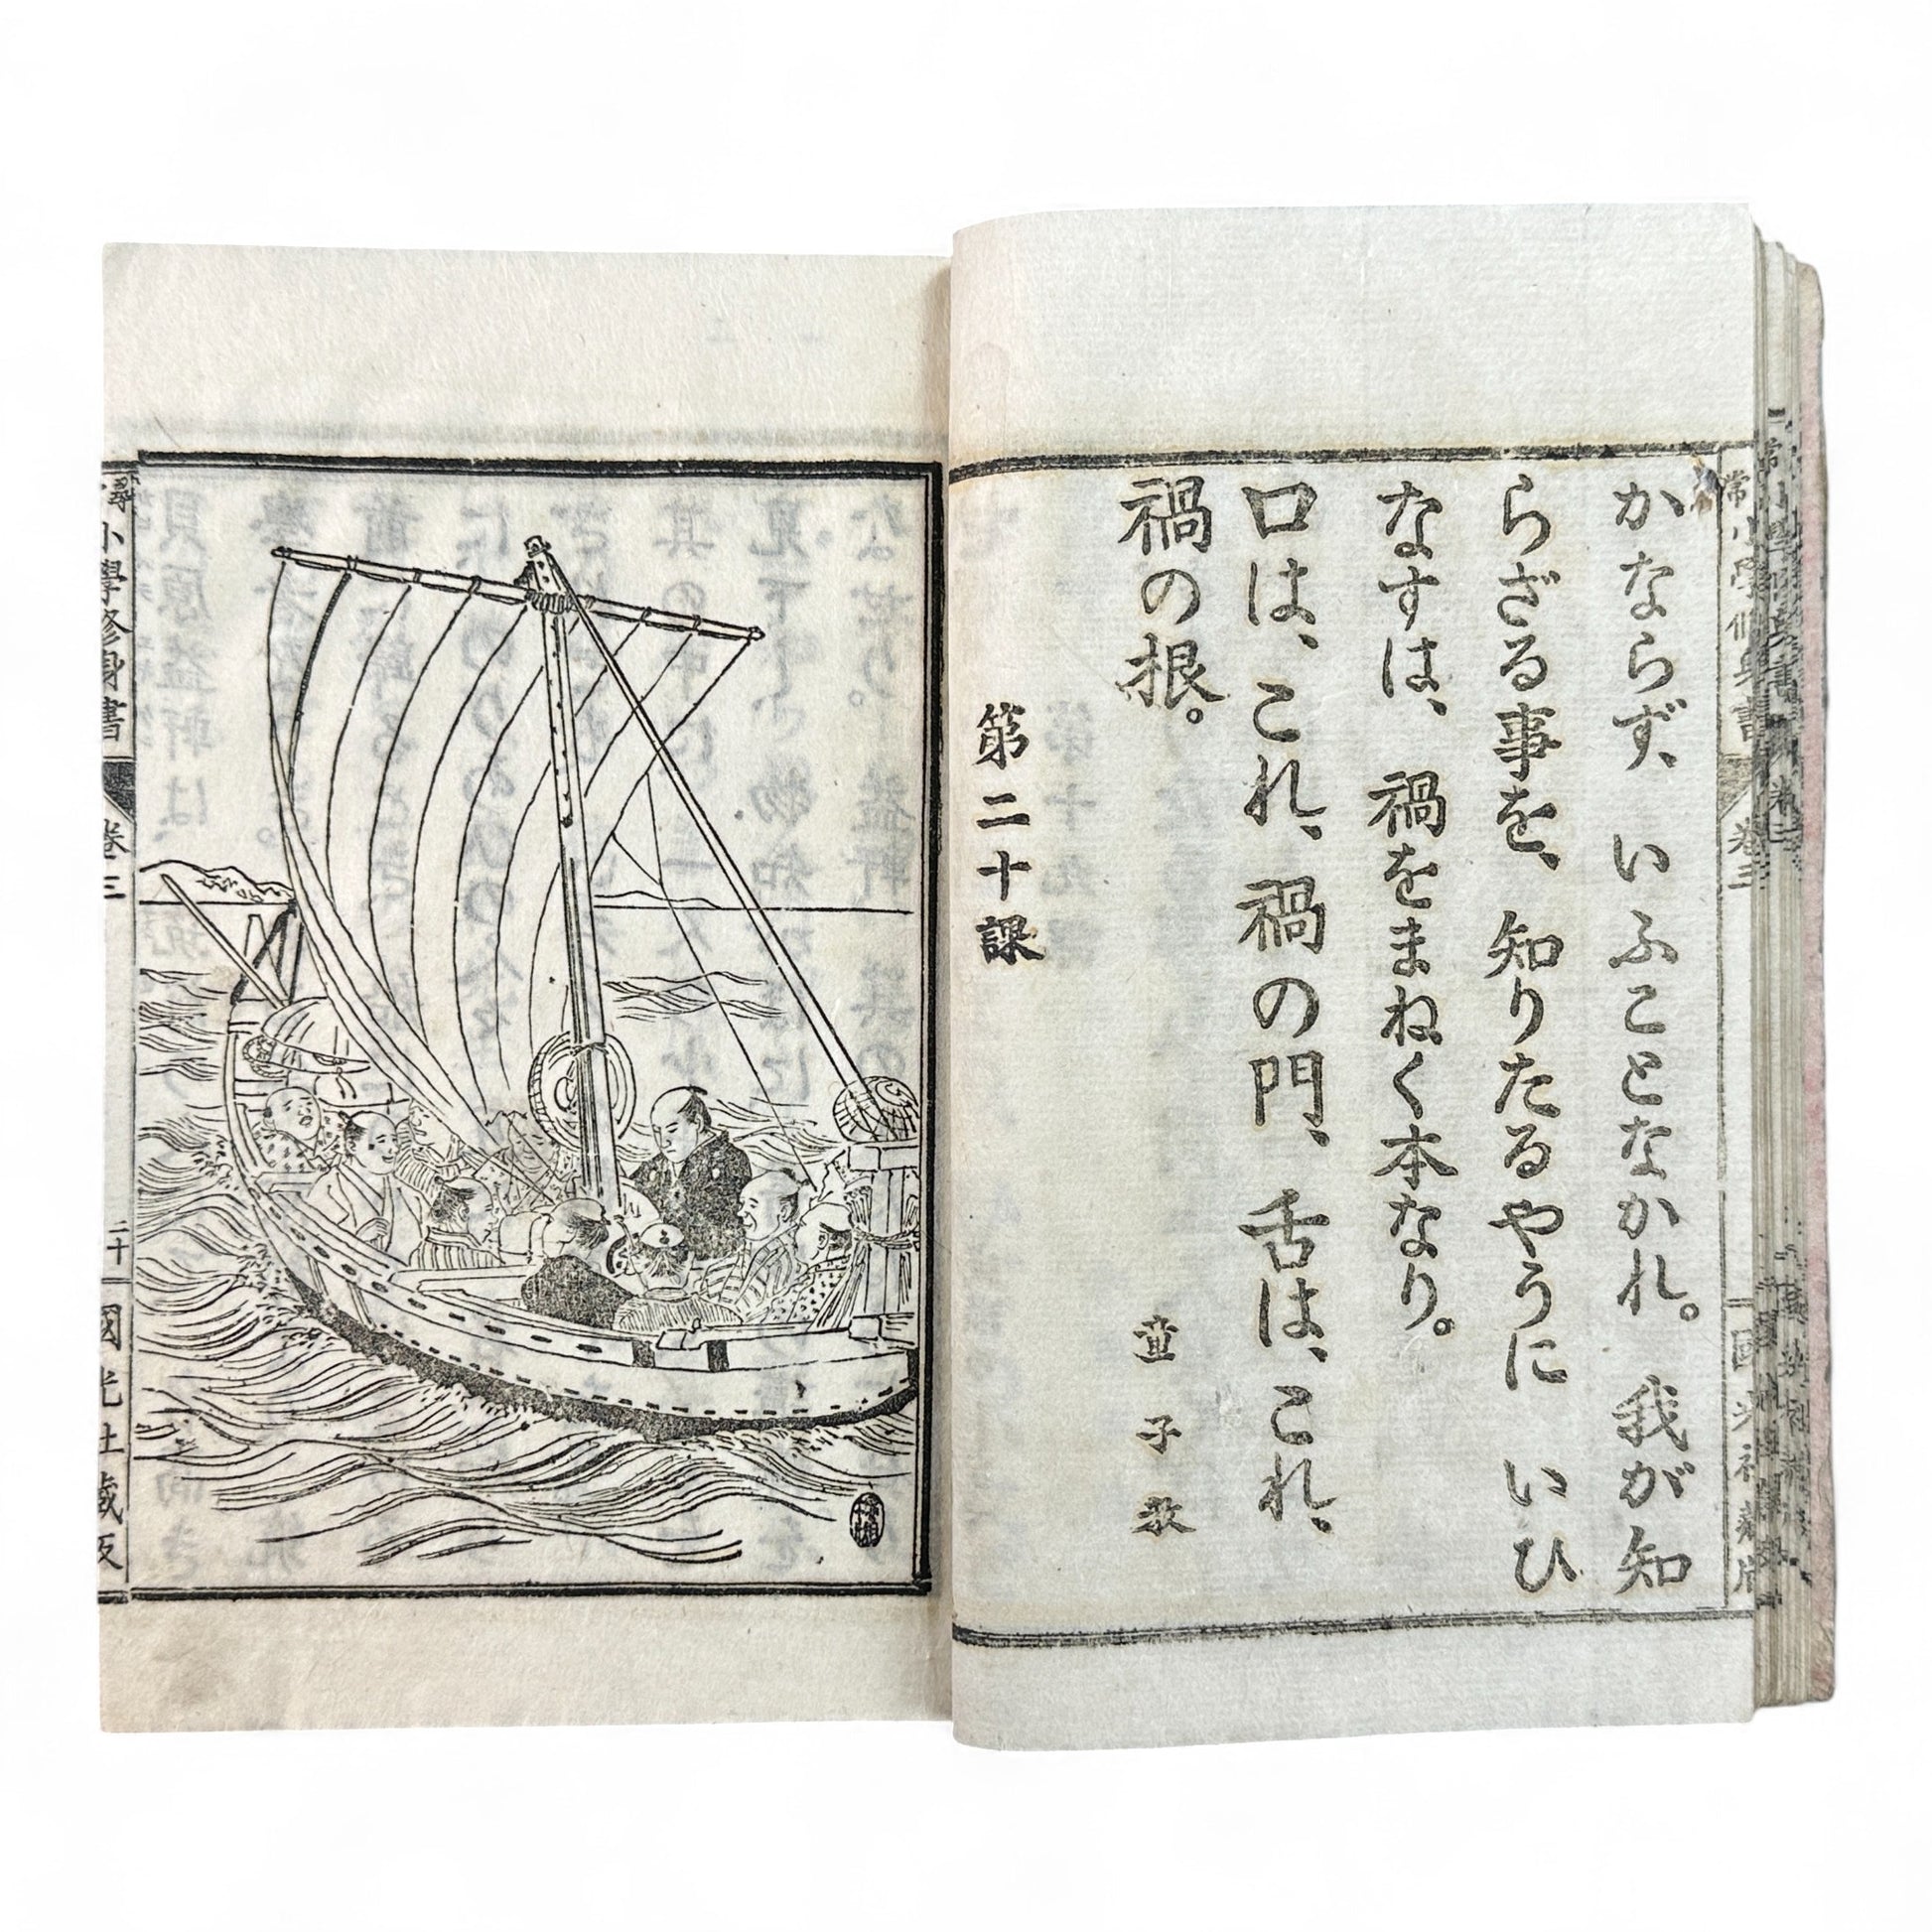 かならず、いふことなかれ。我が知
らざる事を、知りたるやうに いひ
なすは、禍をまねく本なり。
口は、これ、禍の門、舌は、これ、
禍の根。
童子教
第二十課
尋常小學修身書
卷三
二十一
國光社藏版